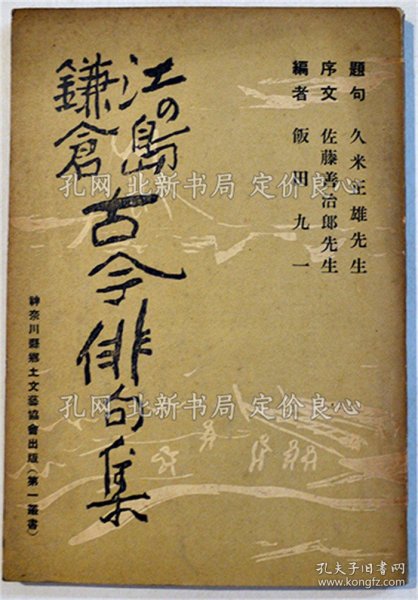 題句 久米正雄先生
序文 佐藤善治郎先生
編者 飯田九一
江の島
鎌倉
古今俳句集
神奈川縣郷土文藝協會出版（第一叢書）
孔网 北新书局 定价良心
孔网 北新书局 定价良心
孔网 北新书局 定价良心
孔夫子旧书网